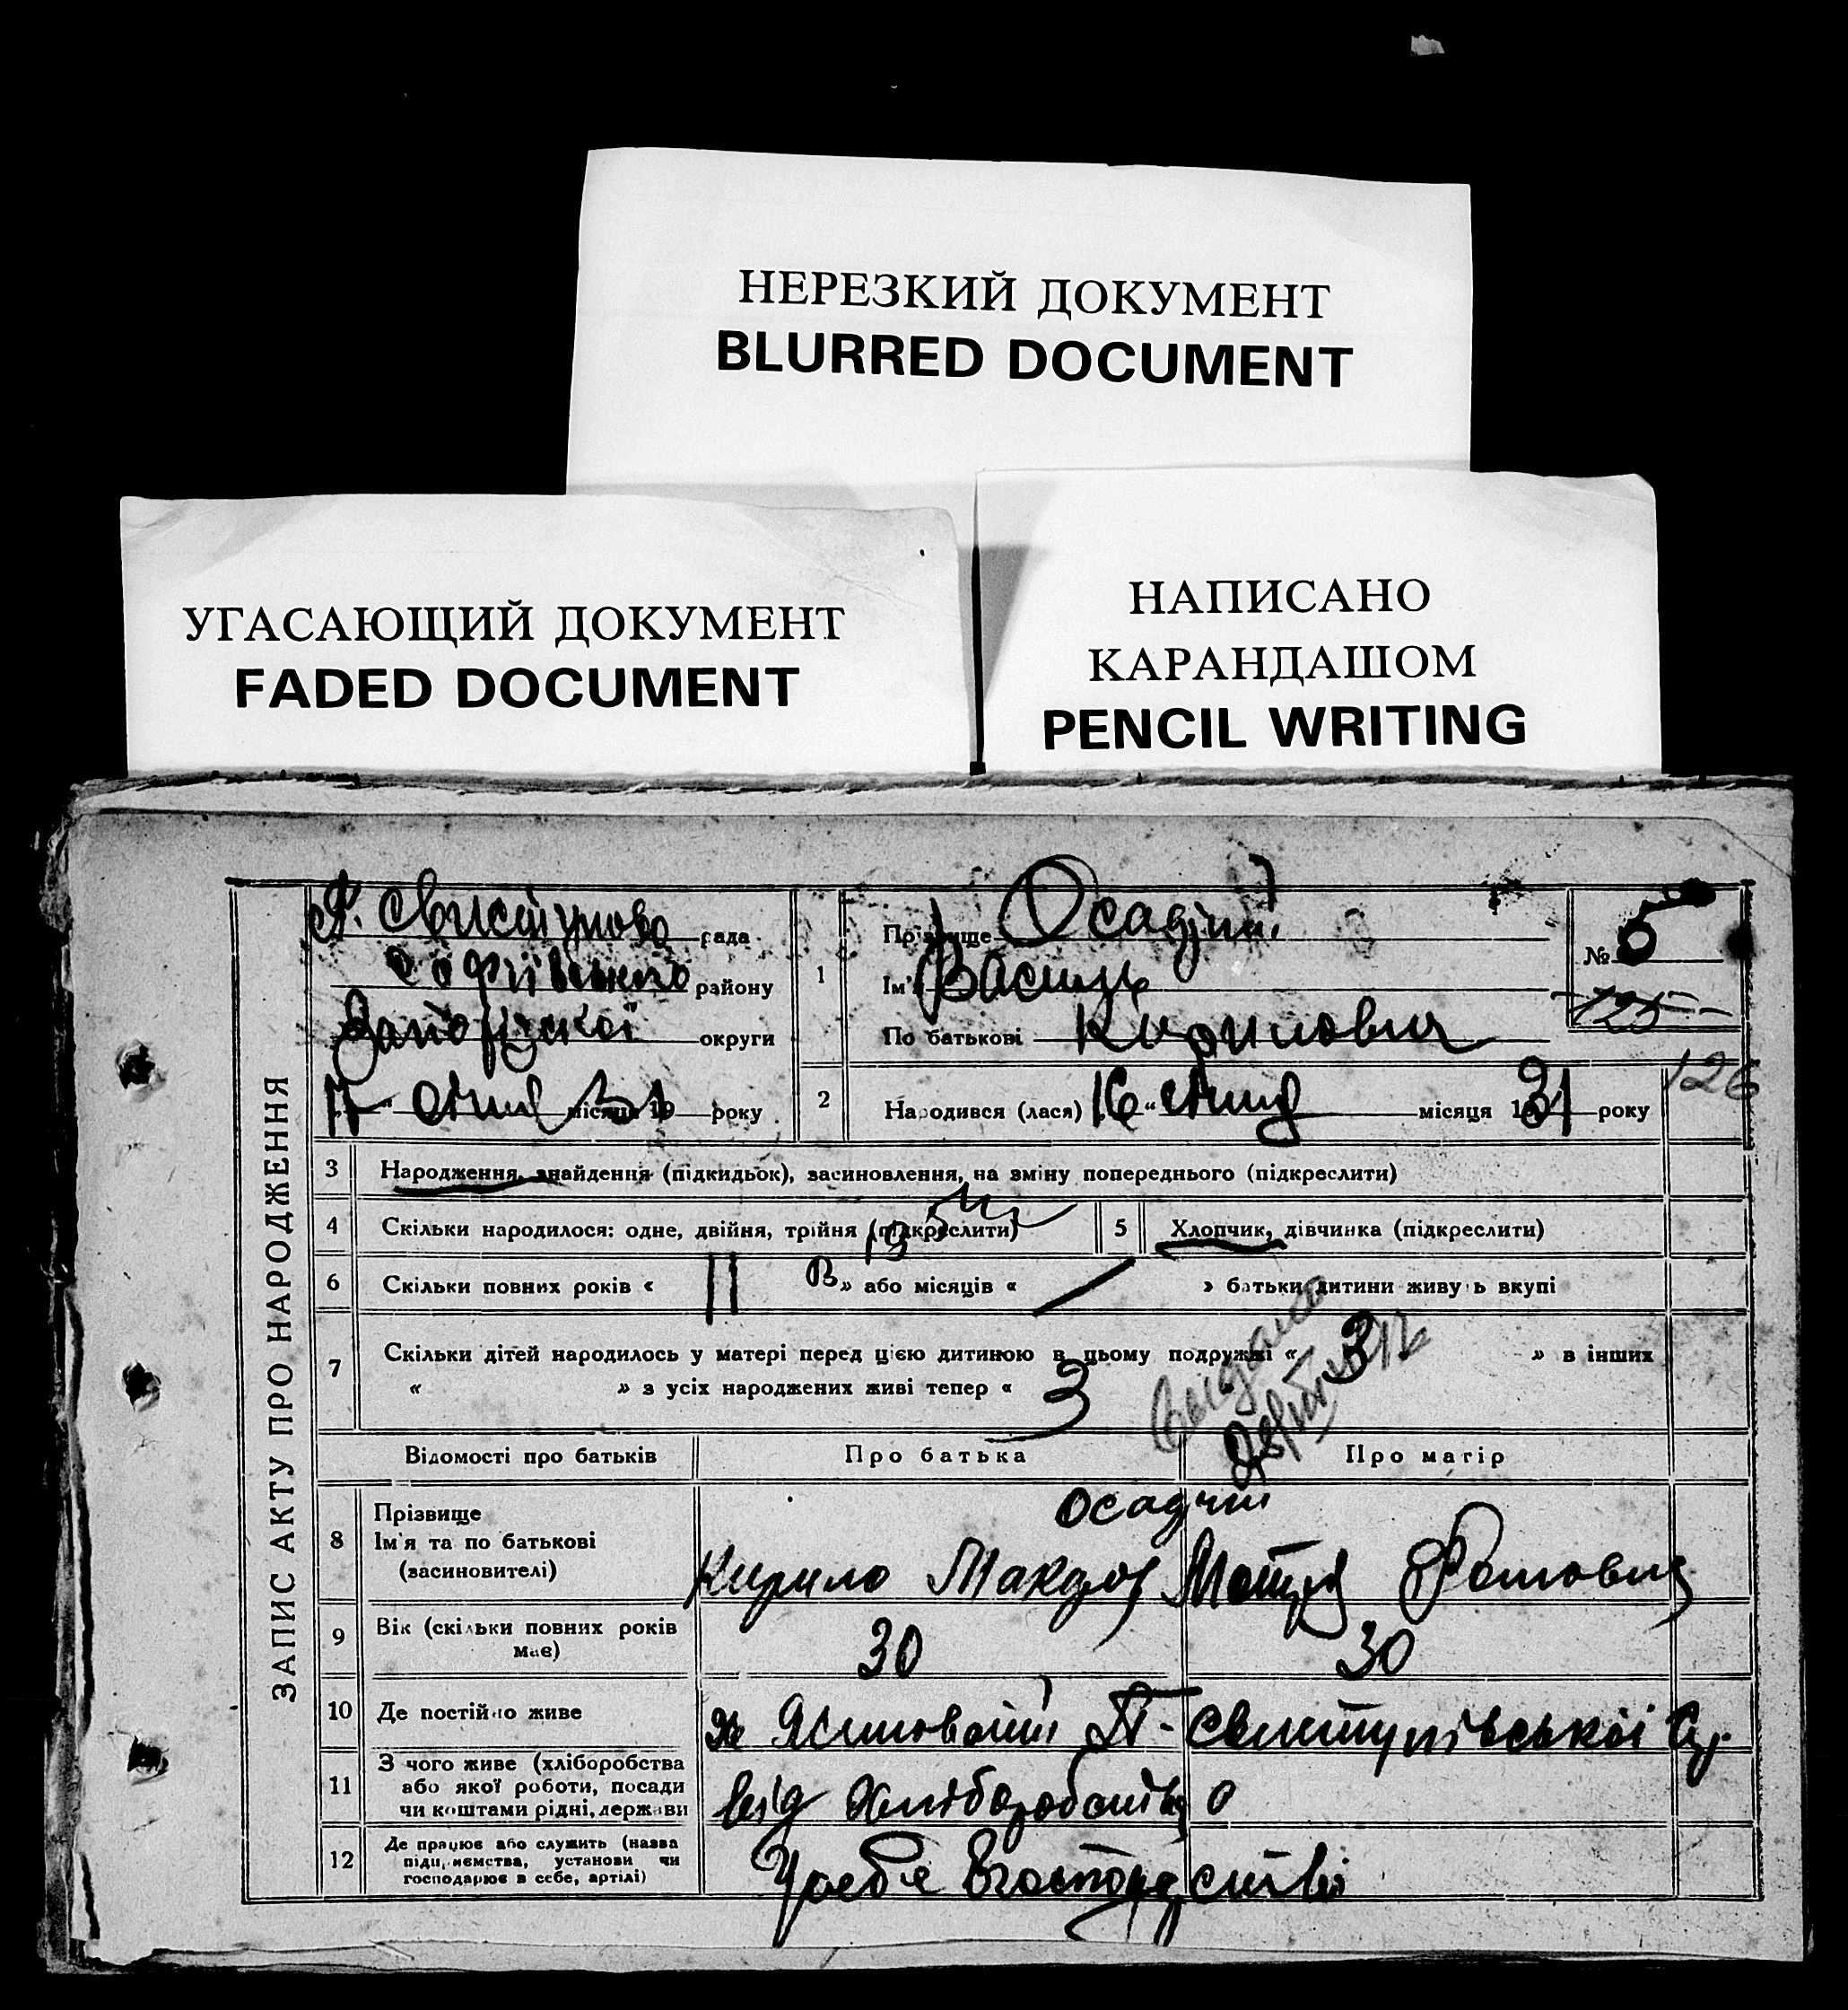 НЕРЕЗКИЙ ДОКУМЕНТ
BLURRED DOCUMENT
УГАСАЮЩИЙ ДОКУМЕНТ
FADED DOCUMENT
НАПИСАНО
КАРАНДАШОМ
PENCIL WRITING
ЗАПИС АКТУ ПРО НАРОДЖЕННЯ
Свистунова рада
Софіївського району
Запорізької округи
17 січня 31 місяця 19 року
1 Прізвище Осадчий
Ім'я Василь
По батькові Кирилович
№ 5
125
126
2 Народився (лася) 16 “ січня місяця 1931 року
3 Народження, знайдення (підкидьок), засиновлення, на зміну попереднього (підкреслити)
4 Скільки народилося: одне, двійня, трійня (підкреслити)
5 Хлопчик, дівчинка (підкреслити)
6 Скільки повних років « 11 » або місяців « » батьки дитини живуть вкупі
7 Скільки дітей народилось у матері перед цією дитиною в цьому подружжі « 3 » в інших
« » з усіх народжених живі тепер « 3
Відомості про батьків Про батька Про матір
8 Прізвище
Ім'я та по батькові
(засиновителі)
Осадчий
Кирило Макаров Мотря
9 Вік (скільки повних років має) 30 30
10 Де постійно живе Свистунівської
11 З чого живе (хліборобства
або якої роботи, посади
чи коштами рідні, держави
від Хліборобства
12 Де працює або служить (назва
підприємства, установи чи
господарює в себе, артілі)
У себе в господарстві